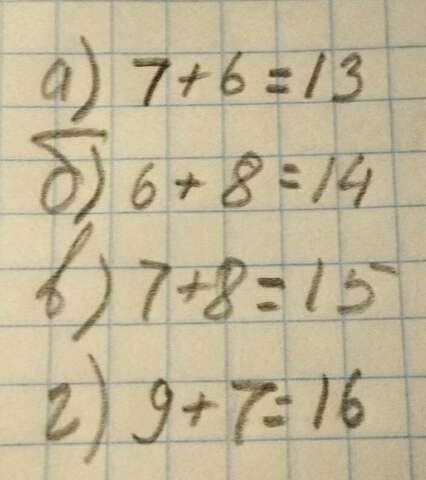 а) 7+6=13
б) 6+8=14
в) 7+8=15
г) 9+7=16